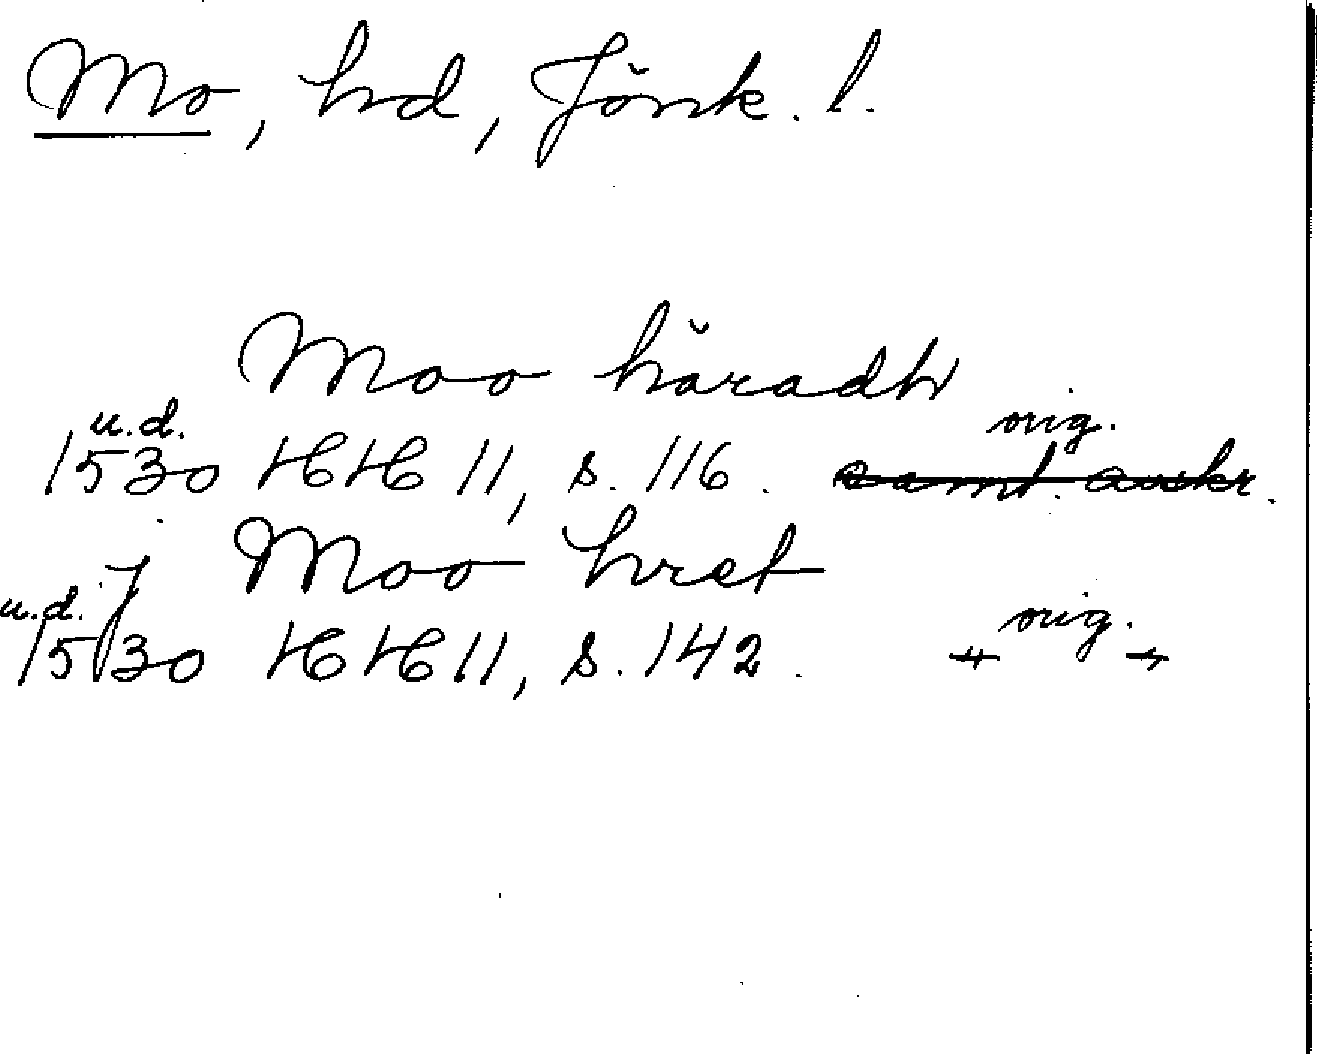 Mo, hd, Jönk. l.
Moo häradh
u.d. orig.
1530 HH 11, s. 116. samt. avskr.
Moo hret
u.d. orig.
1530 HH 11, s. 142. " "